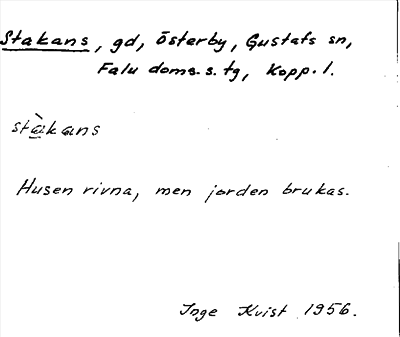 Stakans, gd, Österby, Gustafs sn,
Falu doms.s. tg, Kopp. l.
stàkans
Husen rivna, men jorden brukas.
Inge Kvist 1956.